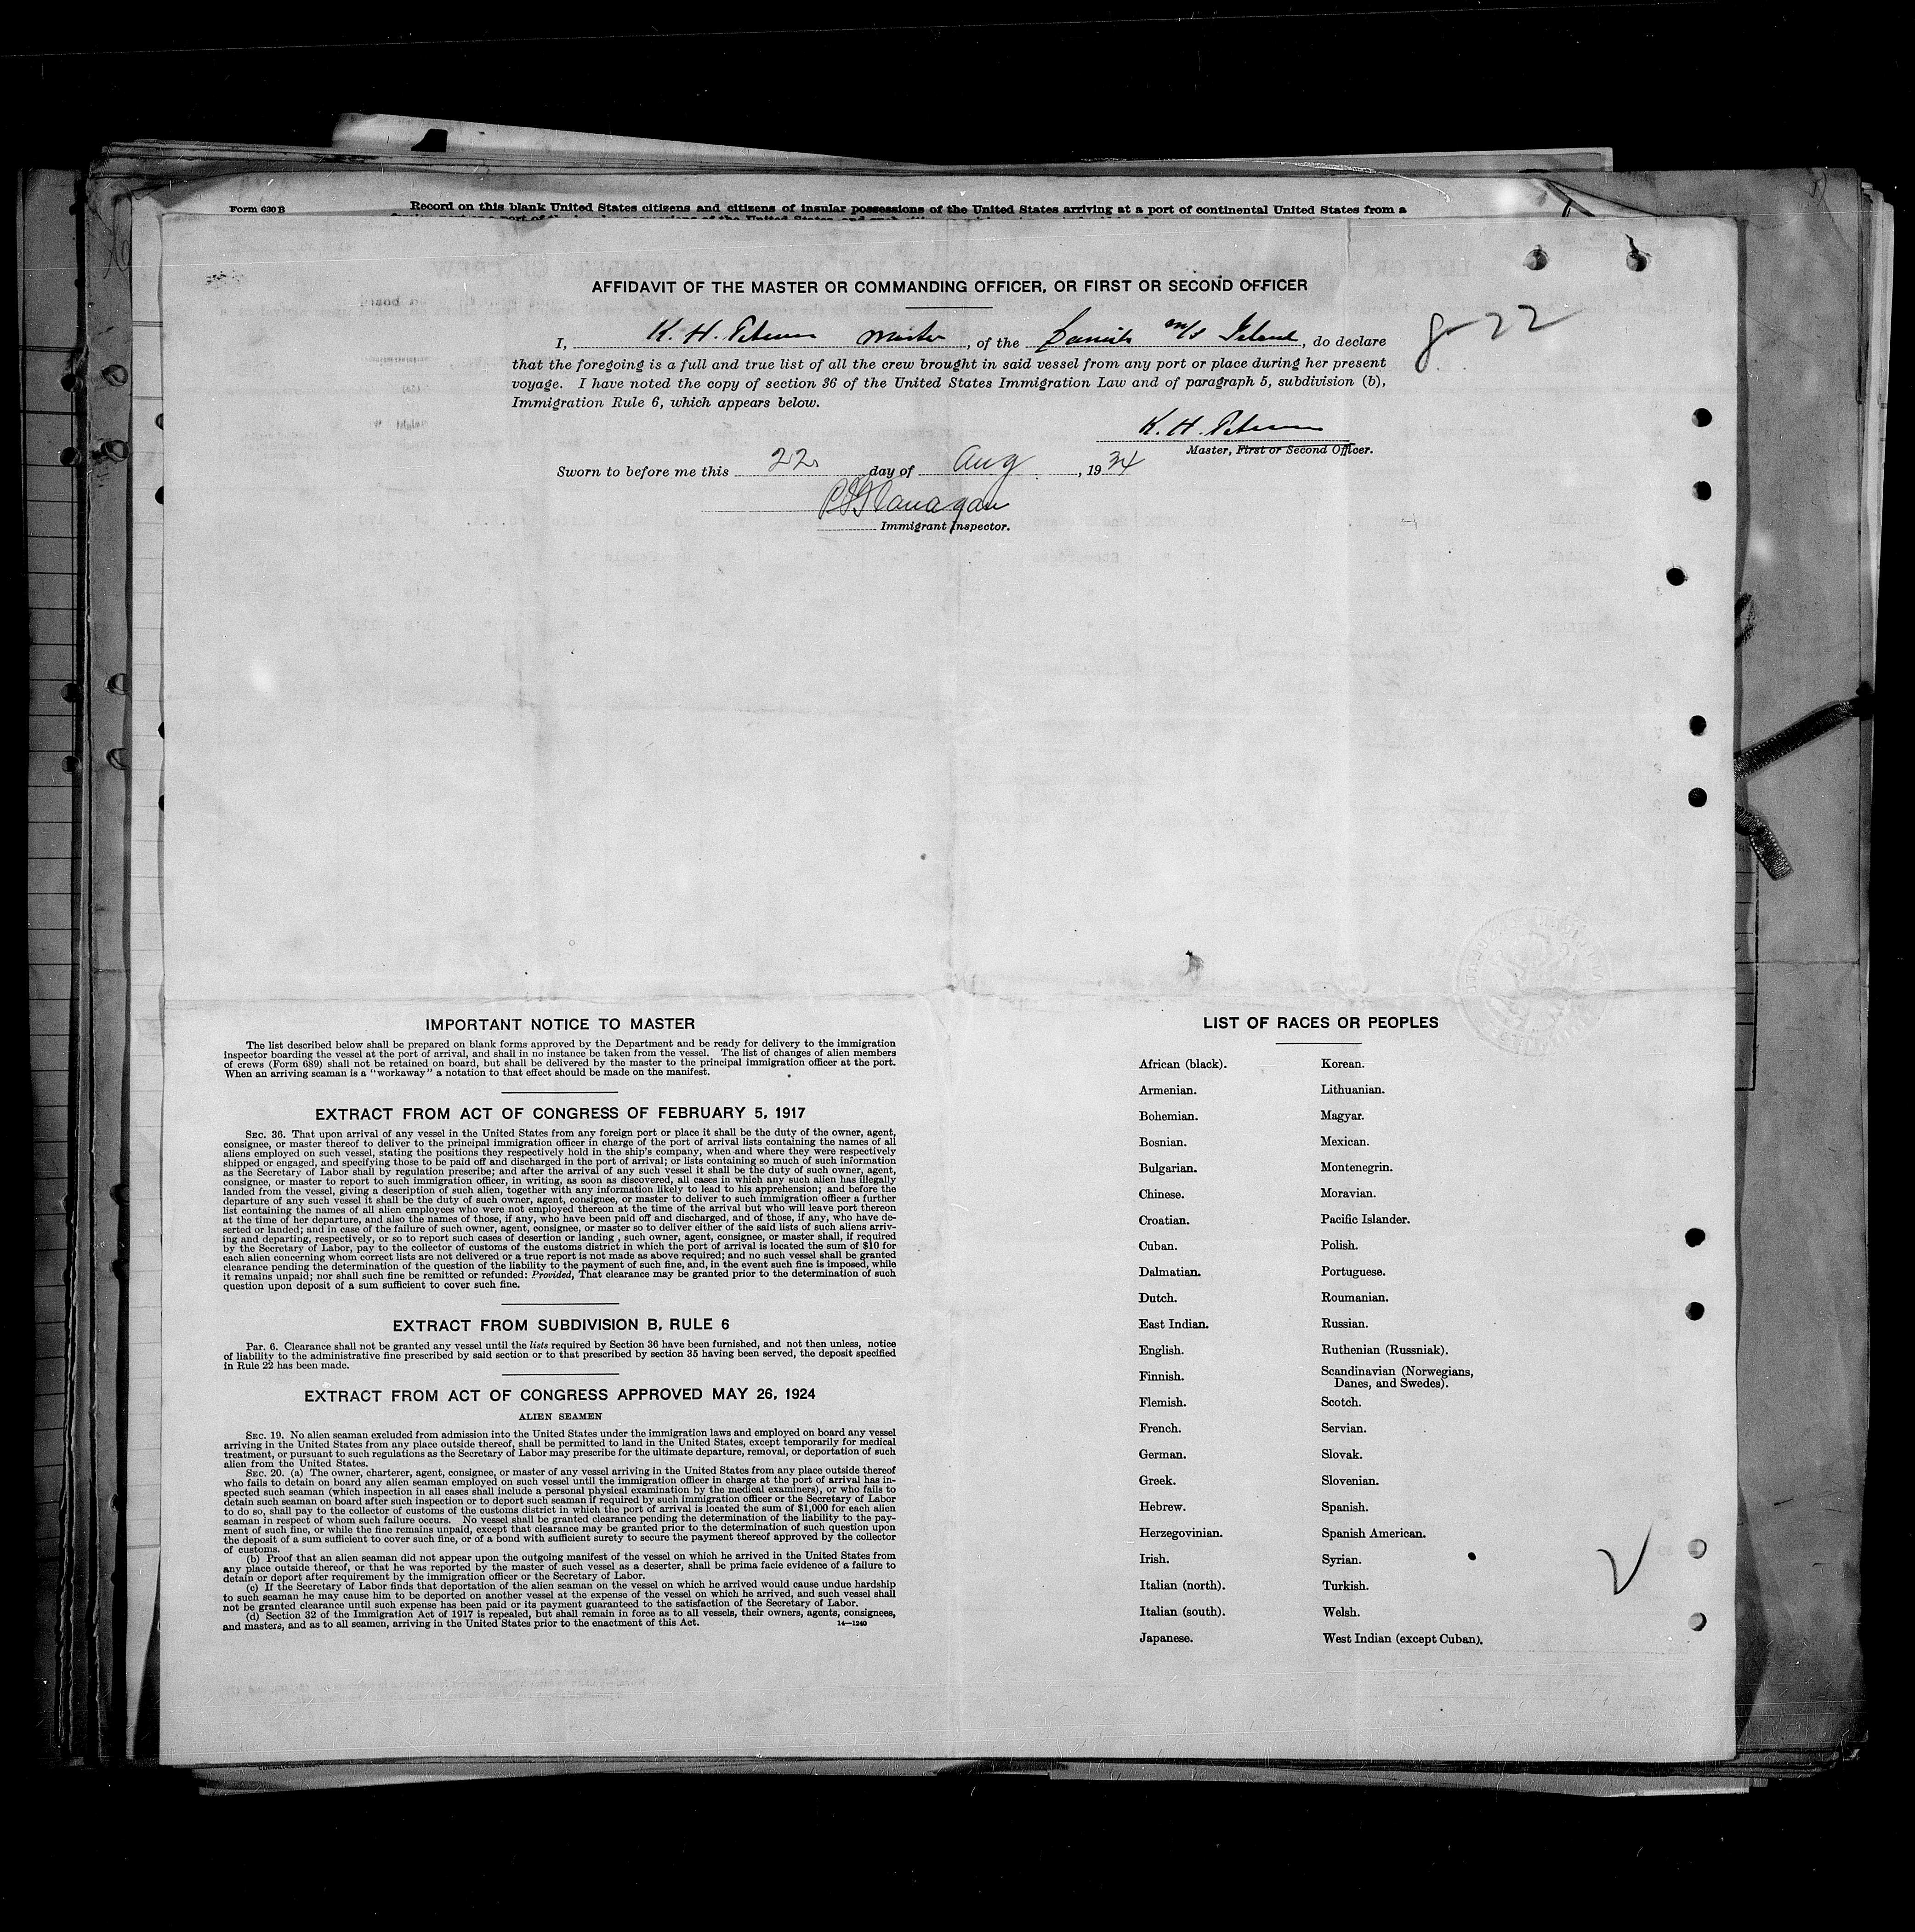 Form 630 B
Record on this blank United States citizens and citizens of insular possessions of the United States arriving at a port of continental United States from a
AFFIDAVIT OF THE MASTER OR COMMANDING OFFICER, OR FIRST OR SECOND OFFICER
I, K. H. Petersen Master, of the Danish m/s Island, do declare
8-22
that the foregoing is a full and true list of all the crew brought in said vessel from any port or place during her present
voyage. I have noted the copy of section 36 of the United States Immigration Law and of paragraph 5, subdivision (b),
Immigration Rule 6, which appears below.
K. H. Petersen
Master, First or Second Officer.
Sworn to before me this 22 day of Aug, 1934
Flanagan
Immigrant Inspector.
IMPORTANT NOTICE TO MASTER
The list described below shall be prepared on blank forms approved by the Department and be ready for delivery to the immigration
inspector boarding the vessel at the port of arrival, and shall in no instance be taken from the vessel. The list of changes of alien members
of crews (Form 689) shall not be retained on board, but shall be delivered by the master to the principal immigration officer at the port.
When an arriving seaman is a "workaway" a notation to that effect should be made on the manifest.
EXTRACT FROM ACT OF CONGRESS OF FEBRUARY 5, 1917
SEC. 36. That upon arrival of any vessel in the United States from any foreign port or place it shall be the duty of the owner, agent,
consignee, or master thereof to deliver to the principal immigration officer in charge of the port of arrival lists containing the names of all
aliens employed on such vessel, stating the positions they respectively hold in the ship's company, when and where they were respectively
shipped or engaged, and specifying those to be paid off and discharged in the port of arrival; or lists containing so much of such information
as the Secretary of Labor shall by regulation prescribe; and after the arrival of any such vessel it shall be the duty of such owner, agent,
consignee, or master to report to such immigration officer, in writing, as soon as discovered, all cases in which any such alien has illegally
landed from the vessel, giving a description of such alien, together with any information likely to lead to his apprehension; and before the
departure of any such vessel it shall be the duty of such owner, agent, consignee, or master to deliver to such immigration officer a further
list containing the names of all alien employees who were not employed thereon at the time of the arrival but who will leave port thereon
at the time of her departure, and also the names of those, if any, who have been paid off and discharged, and of those, if any, who have de-
serted or landed; and in case of the failure of such owner, agent, consignee, or master so to deliver either of the said lists of such aliens arriv-
ing and departing, respectively, or so to report such cases of desertion or landing , such owner, agent, consignee, or master shall, if required
by the Secretary of Labor, pay to the collector of customs of the customs district in which the port of arrival is located the sum of $10 for
each alien concerning whom correct lists are not delivered or a true report is not made as above required; and no such vessel shall be granted
clearance pending the determination of the question of the liability to the payment of such fine, and, in the event such fine is imposed, while
it remains unpaid; nor shall such fine be remitted or refunded: Provided, That clearance may be granted prior to the determination of such
question upon deposit of a sum sufficient to cover such fine.
EXTRACT FROM SUBDIVISION B, RULE 6
PAR. 6. Clearance shall not be granted any vessel until the lists required by Section 36 have been furnished, and not then unless, notice
of liability to the administrative fine prescribed by said section or to that prescribed by section 35 having been served, the deposit specified
in Rule 22 has been made.
EXTRACT FROM ACT OF CONGRESS APPROVED MAY 26, 1924
ALIEN SEAMEN
SEC. 19. No alien seaman excluded from admission into the United States under the immigration laws and employed on board any vessel
arriving in the United States from any place outside thereof, shall be permitted to land in the United States, except temporarily for medical
treatment, or pursuant to such regulations as the Secretary of Labor may prescribe for the ultimate departure, removal, or deportation of such
alien from the United States.
SEC. 20. (a) The owner, charterer, agent, consignee, or master of any vessel arriving in the United States from any place outside thereof
who fails to detain on board any alien seaman employed on such vessel until the immigration officer in charge at the port of arrival has in-
spected such seaman (which inspection in all cases shall include a personal physical examination by the medical examiners), or who fails to
detain such seaman on board after such inspection or to deport such seaman if required by such immigration officer or the Secretary of Labor
to do so, shall pay to the collector of customs of the customs district in which the port of arrival is located the sum of $1,000 for each alien
seaman in respect of whom such failure occurs. No vessel shall be granted clearance pending the determination of the liability to the pay-
ment of such fine, or while the fine remains unpaid, except that clearance may be granted prior to the determination of such question upon
the deposit of a sum sufficient to cover such fine, or of a bond with sufficient surety to secure the payment thereof approved by the collector
of customs.
(b) Proof that an alien seaman did not appear upon the outgoing manifest of the vessel on which he arrived in the United States from
any place outside thereof, or that he was reported by the master of such vessel as a deserter, shall be prima facie evidence of a failure to
detain or deport after requirement by the immigration officer or the Secretary of Labor.
(c) If the Secretary of Labor finds that deportation of the alien seaman on the vessel on which he arrived would cause undue hardship
to such seaman he may cause him to be deported on another vessel at the expense of the vessel on which he arrived, and such vessel shall
not be granted clearance until such expense has been paid or its payment guaranteed to the satisfaction of the Secretary of Labor.
(d) Section 32 of the Immigration Act of 1917 is repealed, but shall remain in force as to all vessels, their owners, agents, consignees,
and masters, and as to all seamen, arriving in the United States prior to the enactment of this Act.
14—1240
LIST OF RACES OR PEOPLES
African (black).
Armenian.
Bohemian.
Bosnian.
Bulgarian.
Chinese.
Croatian.
Cuban.
Dalmatian.
Dutch.
East Indian.
English.
Finnish.
Flemish.
French.
German.
Greek.
Hebrew.
Herzegovinian.
Irish.
Italian (north).
Italian (south).
Japanese.
Korean.
Lithuanian.
Magyar.
Mexican.
Montenegrin.
Moravian.
Pacific Islander.
Polish.
Portuguese.
Roumanian.
Russian.
Ruthenian (Russniak).
Scandinavian (Norwegians,
Danes, and Swedes).
Scotch.
Servian.
Slovak.
Slovenian.
Spanish.
Spanish American.
Syrian.
Turkish.
Welsh.
West Indian (except Cuban).